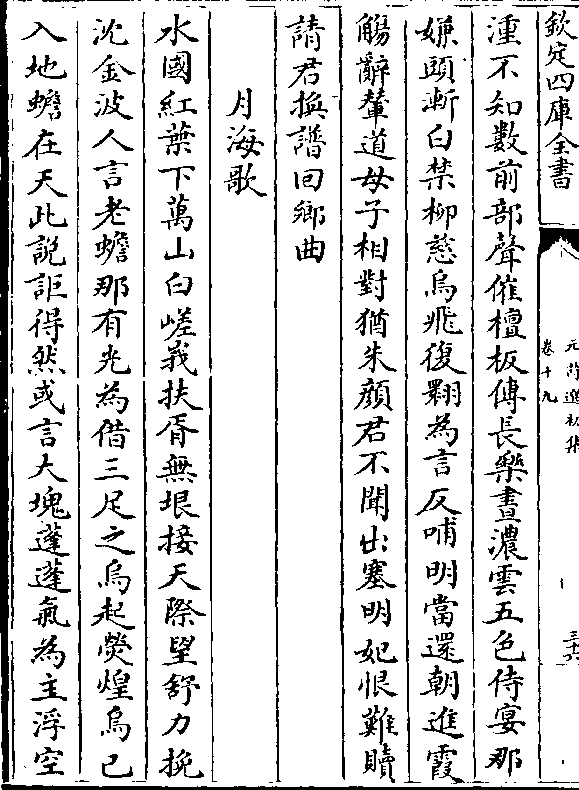 欽定四庫全書
元詩選初集
卷十九
三十六
湩不知數前部聲催檀板傳長樂晝濃雲五色侍宴那
嫌頭漸白禁柳慈烏飛復翾為言反哺明當還朝進霞
觴辭輦道母子相對猶朱顏君不聞出塞明妃恨難贖
請君換譜回鄉曲
月海歌
水國紅葉下萬山白嵯峩扶胥無垠接天際望舒力挽
沈金波人言老蟾那有光為借三足之烏起熒煌烏已
入地蟾在天此說詎得然或言大塊蓬蓬氣為主浮空